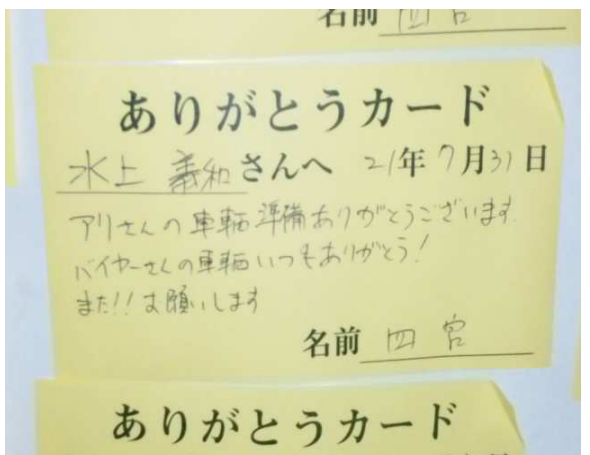 名前 四宮
ありがとうカード
水上 義和さんへ 21年7月31日
アリさんの車輌準備ありがとうございます。
バイヤーさんの車輌いつもありがとう!
また!!お願いします
名前 四宮
ありがとうカード